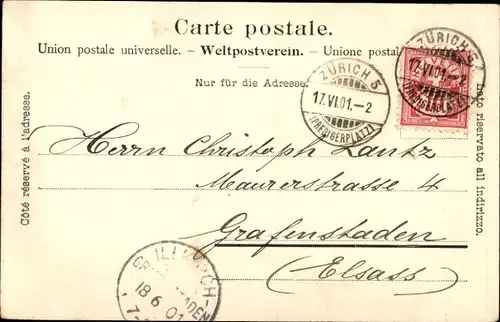 Carte postale.
Union postale universelle. – Weltpostverein. – Unione postal
Nur für die Adresse.
Côté réservé à l'adresse.
lato riservato all indirizzo.
ZÜRICH 5
17.VI.01.–2
ZÜRICH 5
17.VI.01.–2
Herrn Christoph Lantz
Maurerstrasse 4
Grafenstaden
(Elsass)
ILLKIRCH-
18 6 01
7-